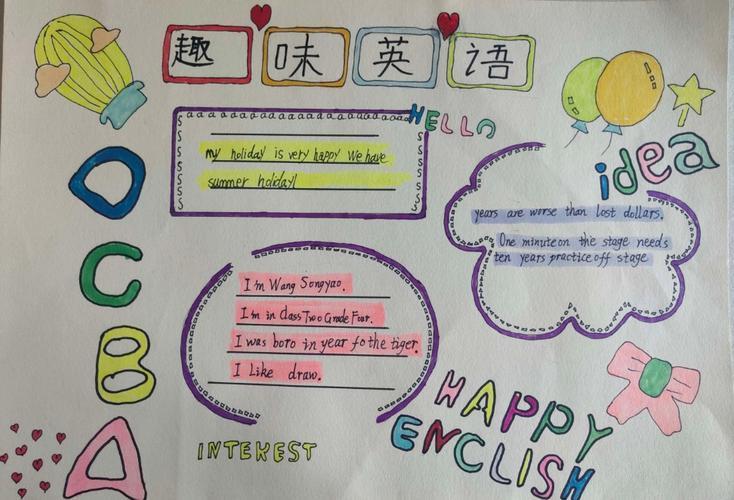 趣味英语
HELLO
my holiday is very happy We have
summer holiday!
idea
years are worse than lost dollars.
One minute on the stage needs
ten years practice off stage
I'm Wang Songyao.
I'm in class Two Grade Four.
I was boro in year fo the tiger.
I like draw.
D
C
B
A
HAPPY
ENCLISH
INTEKEST